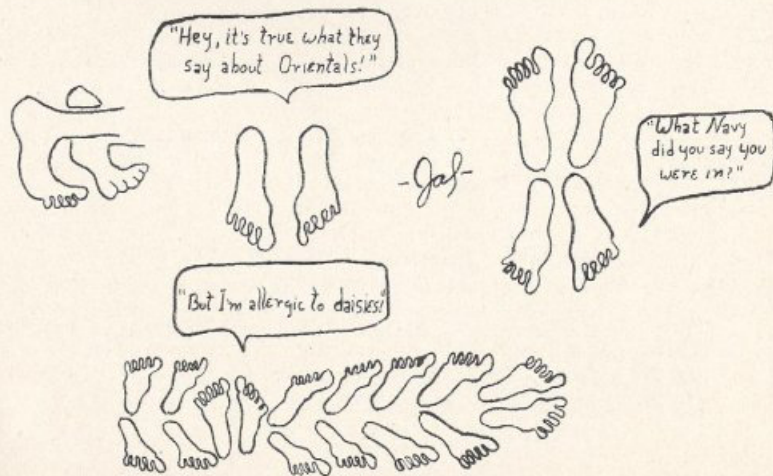 "Hey, it's true what they
say about Orientals!"
"What Navy
did you say you
were in?"
"But I'm allergic to daisies!"